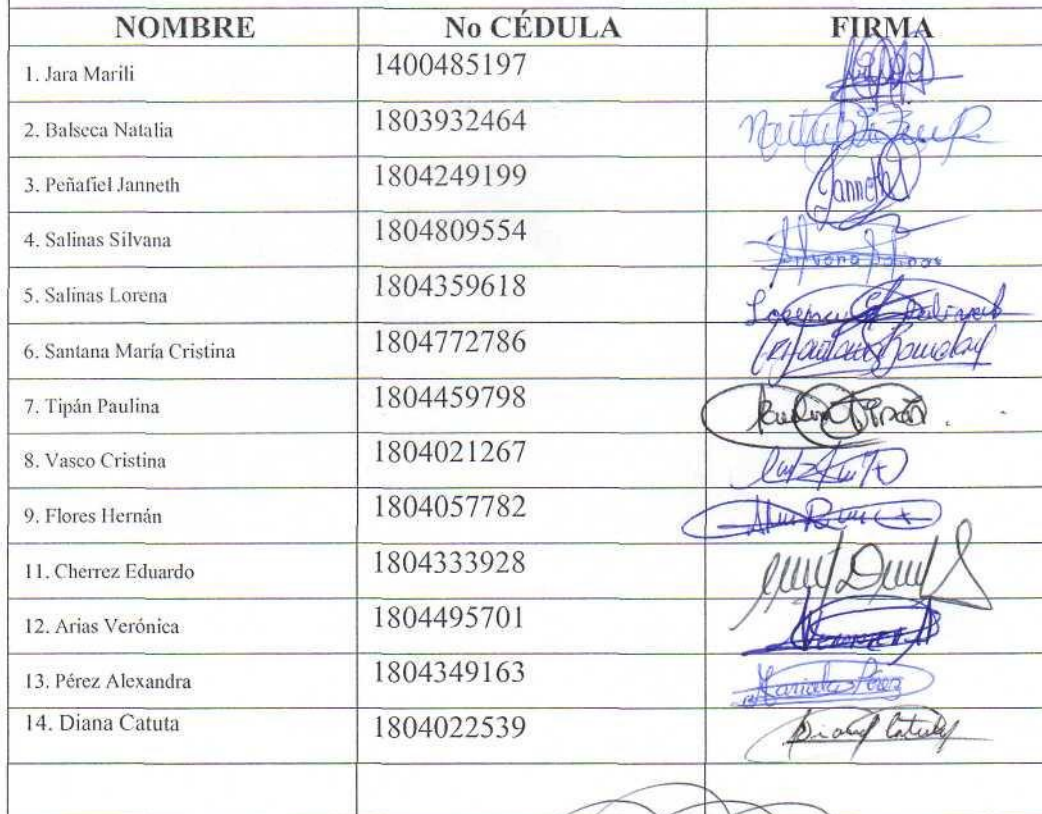 NOMBRE No CÉDULA FIRMA
1. Jara Marili 1400485197
2. Balseca Natalia 1803932464
3. Peñafiel Janneth 1804249199 Janneth
4. Salinas Silvana 1804809554 Silvana Salinas
5. Salinas Lorena 1804359618 Lorena Salinas
6. Santana María Cristina 1804772786
7. Tipán Paulina 1804459798 Paulina Tipán
8. Vasco Cristina 1804021267
9. Flores Hernán 1804057782
11. Cherrez Eduardo 1804333928
12. Arias Verónica 1804495701
13. Pérez Alexandra 1804349163 Pérez
14. Diana Catuta 1804022539 Diana Catuta